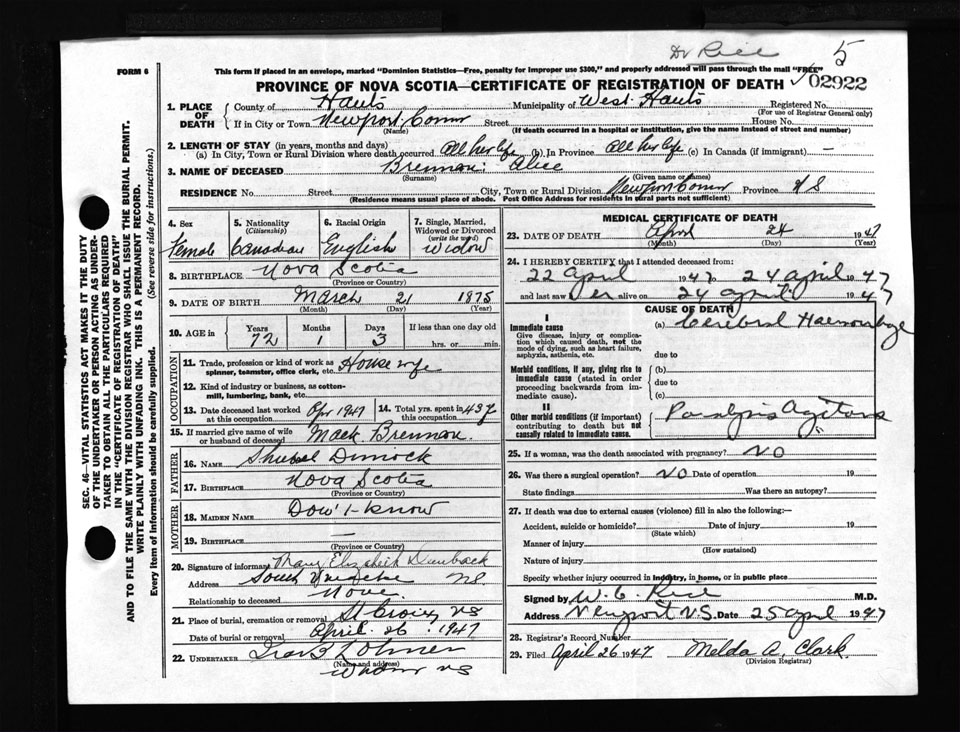 Dr Rice 5
FORM 6
This form if placed in an envelope, marked "Dominion Statistics—Free, penalty for improper use $300," and properly addressed will pass through the mail "FREE"
PROVINCE OF NOVA SCOTIA—CERTIFICATE OF REGISTRATION OF DEATH 02922
SEC. 46—VITAL STATISTICS ACT MAKES IT THE DUTY
OF THE UNDERTAKER OR PERSON ACTING AS UNDER-
TAKER TO OBTAIN ALL THE PARTICULARS REQUIRED
IN THE "CERTIFICATE OF REGISTRATION OF DEATH"
AND TO FILE THE SAME WITH THE DIVISION REGISTRAR WHO SHALL ISSUE THE BURIAL PERMIT.
WRITE PLAINLY WITH UNFADING INK. THIS IS A PERMANENT RECORD.
Every item of information should be carefully supplied. (See reverse side for instructions.)
1. PLACE OF DEATH County of Hants Municipality of West Hants Registered No.
(For use of Registrar General only)
If in City or Town Newport Corner Street House No.
(Name) (If death occurred in a hospital or institution, give the name instead of street and number)
2. LENGTH OF STAY (in years, months and days)
(a) In City, Town or Rural Division where death occurred All her life (b) In Province All her life (c) In Canada (if immigrant) —
3. NAME OF DECEASED Brennan: Alice
(Surname) (Given name or names)
RESIDENCE No. Street City, Town or Rural Division Newport Corner Province N S
(Residence means usual place of abode. Post Office Address for residents in rural parts not sufficient)
4. Sex Female
5. Nationality (Citizenship) Canadian
6. Racial Origin English
7. Single, Married, Widowed or Divorced (write the word) Widow
8. BIRTHPLACE Nova Scotia
(Province or Country)
9. DATE OF BIRTH March 21 1875
(Month) (Day) (Year)
10. AGE in Years 72 Months 1 Days 3 If less than one day old hrs. or min.
OCCUPATION
11. Trade, profession or kind of work as spinner, teamster, office clerk, etc. House wife
12. Kind of industry or business, as cotton-mill, lumbering, bank, etc.
13. Date deceased last worked at this occupation Apr 1947
14. Total yrs. spent in this occupation 43
15. If married give name of wife or husband of deceased Mack Brennan.
FATHER
16. NAME Shubel Dimock
17. BIRTHPLACE Nova Scotia
(Province or Country)
MOTHER
18. MAIDEN NAME Don't know
19. BIRTHPLACE —
(Province or Country)
20. Signature of informant Mary Elizabeth
Address South NS
Relationship to deceased None.
21. Place of burial, cremation or removal St Croix, NS
Date of burial or removal April 26. 1947
22. UNDERTAKER
(Name and address)
Windsor NS
MEDICAL CERTIFICATE OF DEATH
23. DATE OF DEATH April 24 1947
(Month) (Day) (Year)
24. I HEREBY CERTIFY that I attended deceased from:
22 April 1947 to 24 April 1947
and last saw her alive on 24 April 1947
CAUSE OF DEATH
I
Immediate cause
Give disease, injury or complication which caused death, not the mode of dying, such as heart failure, asphyxia, asthenia, etc.
(a) Cerebral Haemorrhage
due to
Morbid conditions, if any, giving rise to immediate cause (stated in order proceeding backwards from immediate cause).
(b)
due to
(c)
II
Other morbid conditions (if important) contributing to death but not causally related to immediate cause.
Paralysis Agitans
25. If a woman, was the death associated with pregnancy? NO
26. Was there a surgical operation? NO Date of operation 19
State findings Was there an autopsy?
27. If death was due to external causes (violence) fill in also the following:—
Accident, suicide or homicide? Date of injury 19
(State which)
Manner of injury
(How sustained)
Nature of injury
Specify whether injury occurred in industry, in home, or in public place
Signed by W. C. Rice M.D.
Address Newport N.S. Date 25 April 1947
28. Registrar's Record Number
29. Filed April 26 1947 Melda A. Clark.
(Division Registrar)